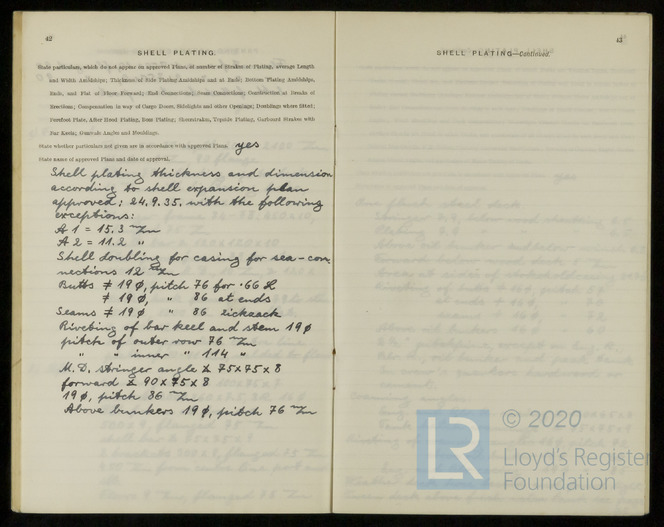 42
SHELL PLATING.
State particulars, which do not appear on approved Plans, of number of Strakes of Plating, average Length
and Width Amidships; Thickness of Side Plating Amidships and at Ends; Bottom Plating Amidships,
Ends, and Flat of Floor Forward; End Connections; Seam Connections; Construction at Breaks of
Erections; Compensation in way of Cargo Doors, Sidelights and other Openings; Doublings where fitted;
Forefoot Plate, After Hood Plating, Boss Plating, Sheerstrakes, Topside Plating, Garboard Strakes with
Bar Keels; Gunwale Angles and Mouldings.
State whether particulars not given are in accordance with approved Plans. yes
State name of approved Plans and date of approval.
Shell plating thickness and dimension
according to shell expansion plan
approved: 24.9.35. with the following
exceptions:
A 1 = 15.3 m/m
A 2 = 11.2 "
Shell doubling for casing for sea-con-
nections 12 m/m
Butts ≠ 19 ϕ, pitch 76 for .66
≠ 19 ϕ, " 86 at ends
Seams ≠ 19 ϕ " 86 zickzack
Riveting of bar keel and stem 19 ϕ
pitch of outer row 76 m/m
" " inner " 114 "
M.D. stringer angle 75x75x8
forward 90x75x8
19 ϕ, pitch 86 m/m
Above bunkers 19 ϕ, pitch 76 m/m
43
SHELL PLATING—Continued.
LR
© 2020
Lloyd's Register
Foundation